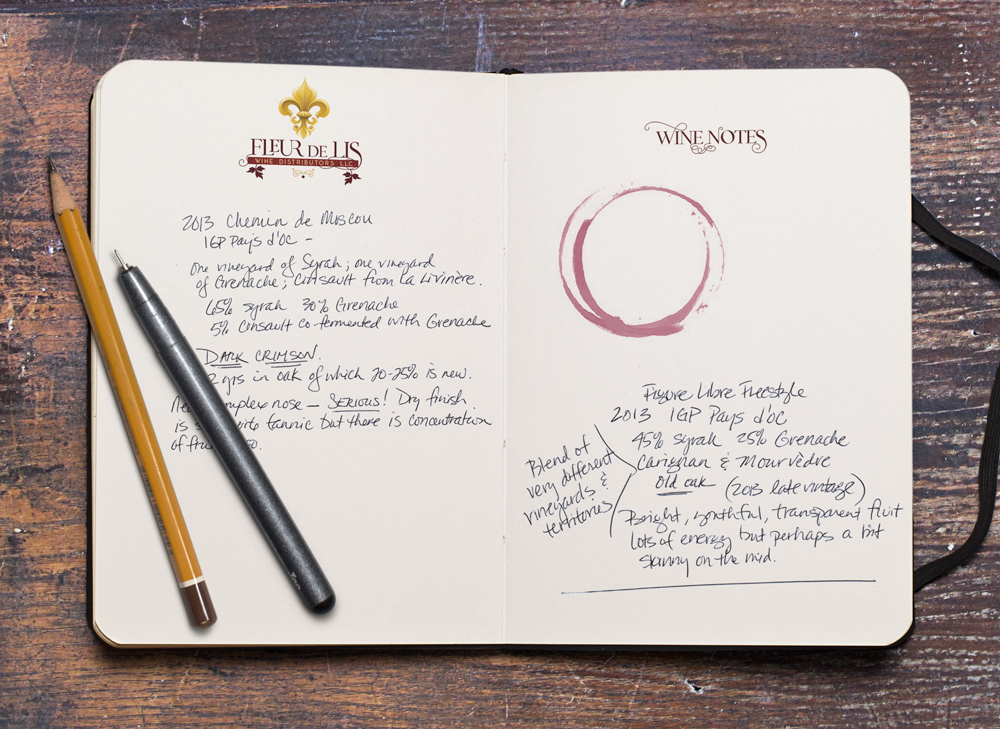 FLEUR DE LIS
WINE DISTRIBUTORS LLC
2013 Chemin de Moscou
IGP Pays d'Oc -
One vineyard of Syrah; one vineyard
of Grenache; Cinsault from La Livinère.
65% Syrah 30% Grenache
5% Cinsault co-fermented with Grenache
DARK CRIMSON.
2 yrs in oak of which 20-25% is new.
complex nose — SERIOUS! Dry finish
is tannic but there is concentration
of
WINE NOTES
Figure Libre Freestyle
2013 IGP Pays d'Oc
45% Syrah 25% Grenache
Carignan & Mourvèdre
Old oak (2013 late vintage)
Blend of
very different
vineyards &
territories
Bright, youthful, transparent fruit
Lots of energy but perhaps a bit
skinny on the mid.